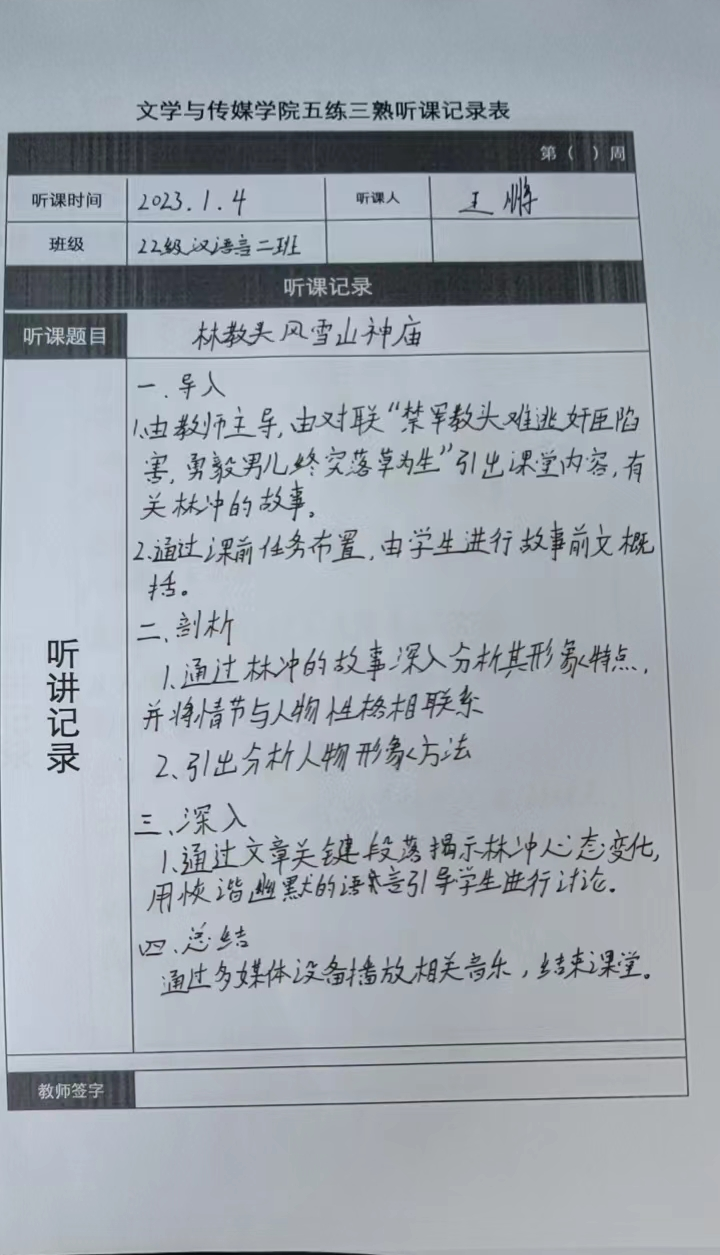 文学与传媒学院五练三熟听课记录表
第（ ）周
听课时间 2023.1.4 听课人 王鹏
班级 22级汉语言二班
听课记录
听课题目 林教头风雪山神庙
听讲记录
一.导入
1.由教师主导,由对联“禁军教头难逃奸臣陷
害,勇毅男儿终究落草为生”引出课堂内容,有
关林冲的故事。
2.通过课前任务布置,由学生进行故事前文概
括。
二、剖析
1.通过林冲的故事深入分析其形象特点,
并将情节与人物性格相联系
2、引出分析人物形象方法
三、深入
1.通过文章关键段落揭示林冲心态变化,
用诙谐幽默的语言引导学生进行讨论.
四、总结
通过多媒体设备播放相关音乐,结束课堂。
教师签字